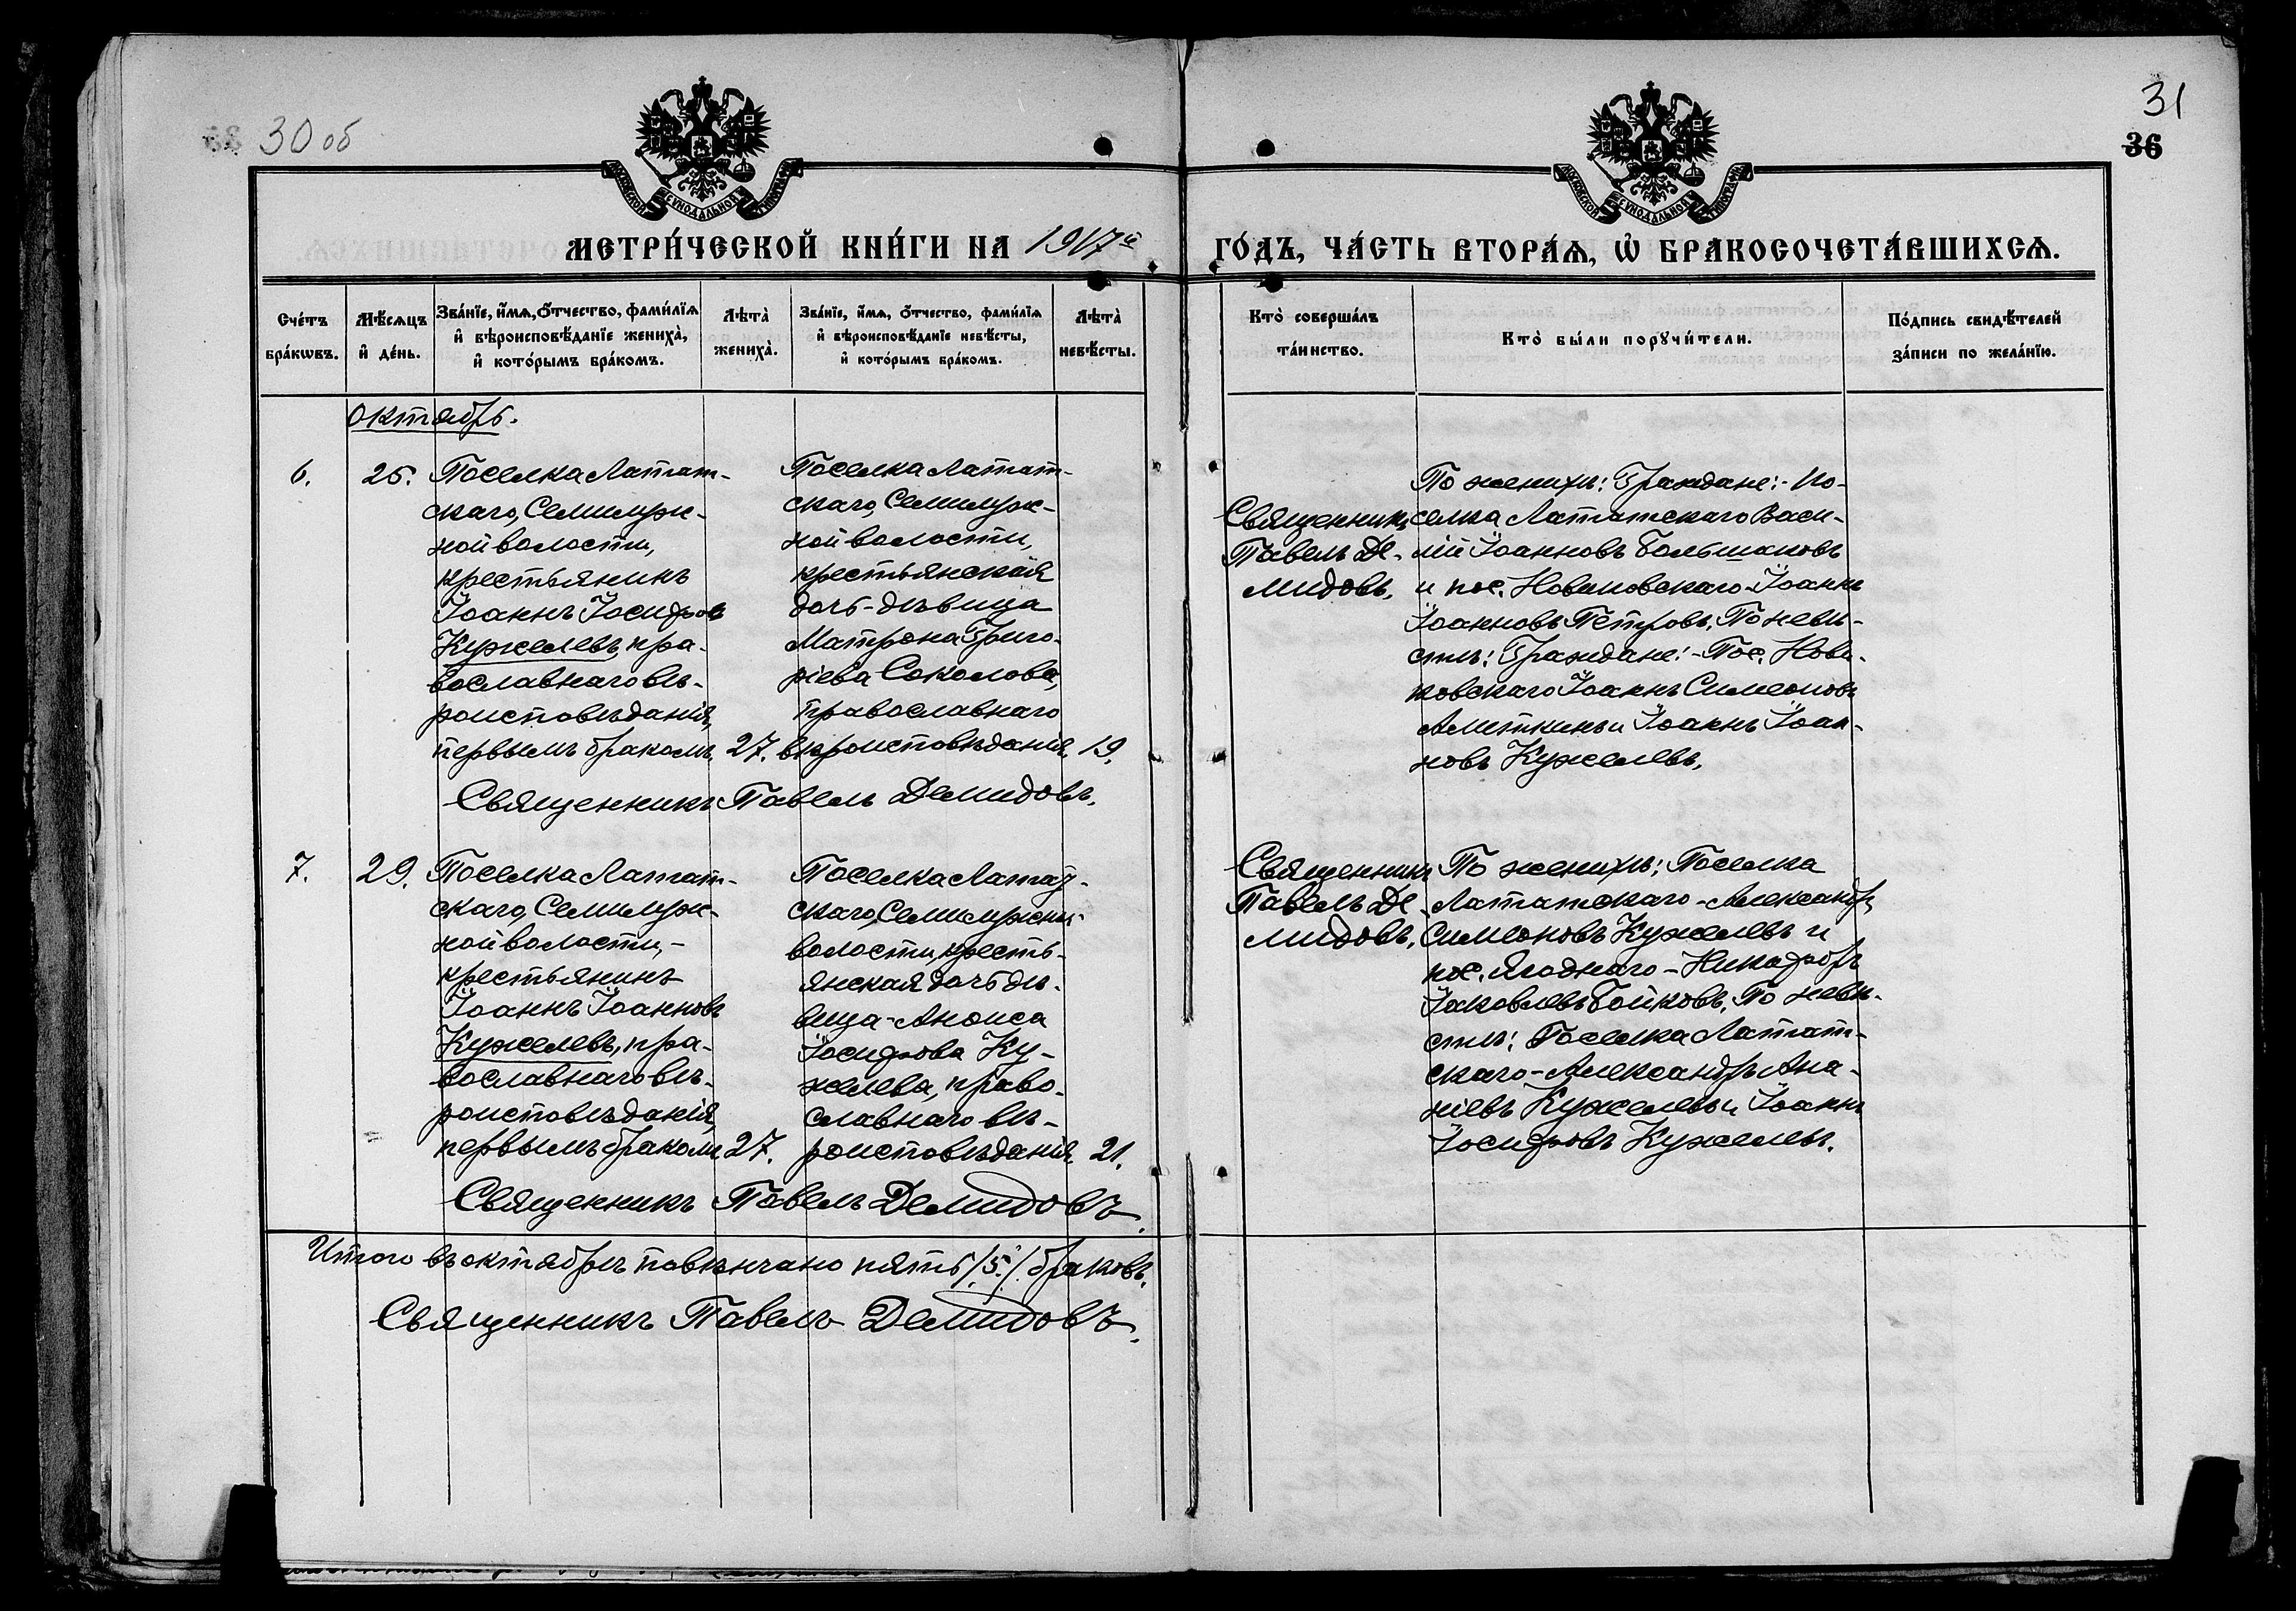 30 об
31
36
МОСКОВСКОЙ СѴНОДАЛЬНОЙ ТИПОГРАФІИ
МОСКОВСКОЙ СѴНОДАЛЬНОЙ ТИПОГРАФІИ
МЕТРИ́ЧЕСКОЙ КНИ́ГИ НА 1917й
ГО́ДЪ, ЧА́СТЬ ВТОРА́Ѧ, Ѿ БРАКОСОЧЕТА́ВШИХСѦ.
Сче́тъ бра́кωвъ.
Мѣ́сѧцъ и҆ де́нь.
Зва́нїе, и҆́мѧ, ѻ҆́тчество, фами́лїѧ
и҆ вѣроисповѣ́данїе жениха̀,
и҆ кото́рымъ бра́комъ.
Лѣта̀ жениха̀.
Зва́нїе, и҆́мѧ, ѻ҆́тчество, фами́лїѧ
и҆ вѣроисповѣ́данїе невѣ́сты,
и҆ кото́рымъ бра́комъ.
Лѣта̀ невѣ́сты.
Кто̀ соверша́лъ та́инство.
Кто̀ бы́ли порꙋчи́тели.
По́дпись свидѣ́телей
за́писи по жела́нїю.
Октябрь.
6.
25.
Поселка Латат-
скаго, Семилуж-
ной волости,
крестьянинъ
Іоаннъ Іосифов
Кужелевъ, пра-
вославнаго вѣ-
роисповѣданія,
первымъ бракомъ.
27.
Поселка Латат-
скаго, Семилуж-
ной волости,
крестьянская
дочь-дѣвица
Матрона Григо-
ріева Соколова,
православнаго
вѣроисповѣданія.
19.
Священникъ Павелъ Демидовъ.
Священникъ
Павелъ Де-
мидовъ.
По женихѣ: Граждане:- По-
селка Лататскаго Васи-
лій Іоанновъ Большаковъ
и пос. Новиковскаго Іоаннъ
Іоанновъ Петровъ. По невѣ-
стѣ: Граждане:- Пос. Нови-
ковскаго Іоаннъ Симеоновъ
Аметкинъ и Іоаннъ Іоан-
новъ Кужелевъ.
7.
29.
Поселка Латат-
скаго, Семилуж-
ной волости,-
крестьянинъ
Іоаннъ Іоанновъ
Кужелевъ, пра-
вославнаго вѣ-
роисповѣданія,
первымъ бракомъ
27.
Поселка Латат-
скаго, Семилужной
волости, кресть-
янская дочь дѣ-
вица-Анисса
Іосифова Ку-
желева, право-
славнаго вѣ-
роисповѣданія.
21.
Священникъ Павелъ Демидовъ.
Священникъ
Павелъ Де-
мидовъ.
По женихѣ: Поселка
Лататскаго-Александръ
Симеоновъ Кужелевъ и
пос. Ягоднаго-Никафоръ
Іаковлевъ Бойковъ. По невѣ-
стѣ: Поселка Латат-
скаго-Александръ Ана-
ніевъ Кужелевъ и Іоаннъ
Іосифовъ Кужелевъ.
Итого въ октябрѣ повѣнчано пять /5./ браковъ.
Священникъ Павелъ Демидовъ.